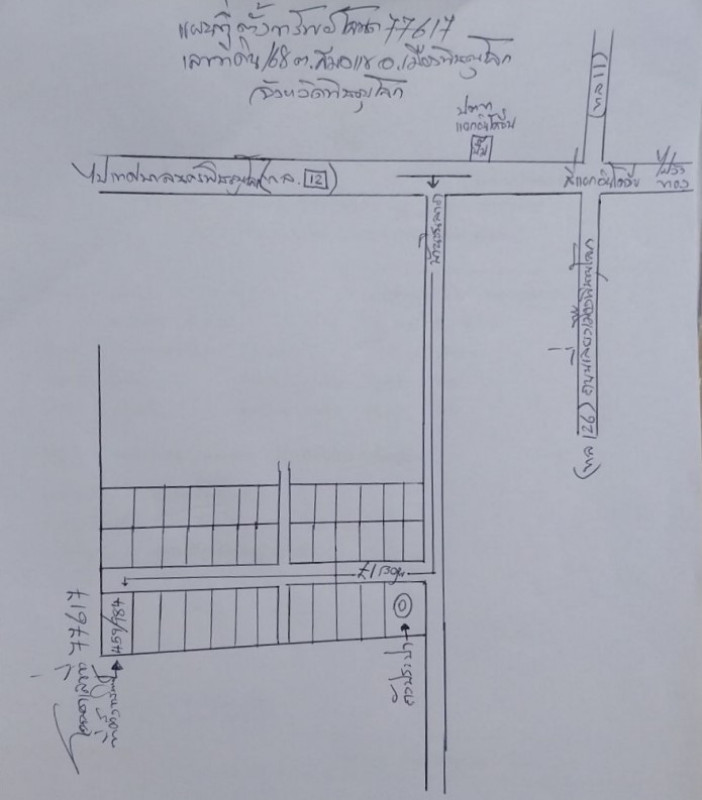 แผนที่ตั้งทรัพย์โฉนด 77617
เลขที่ดิน 168 ต.สมอแข อ.เมืองพิษณุโลก
จังหวัดพิษณุโลก
ทล 11
ปตท
แยกอินโดจีน
ไปเทศบาลนครพิษณุโลก (ทล. 12)
สี่แยกอินโดจีน
ไปวังทอง
(ทล 126) ถนนเลี่ยงเมืองพิษณุโลก
ซอย 17
459/184
ที่ตั้งทรัพย์
โฉนดเลขที่ 77617